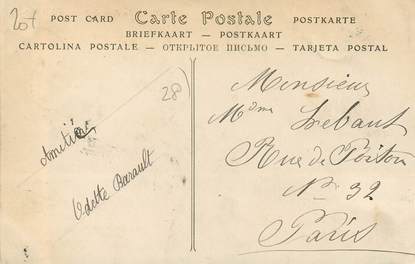 20f
POST CARD Carte Postale POSTKARTE
BRIEFKAART — POSTKAART
CARTOLINA POSTALE — ОТКРЫТОЕ ПИСЬМО — TARJETA POSTAL
28
Amitiés
Odette Barault
Monsieur
Mdme Lebaut
Rue de Poitou
No 32
Paris